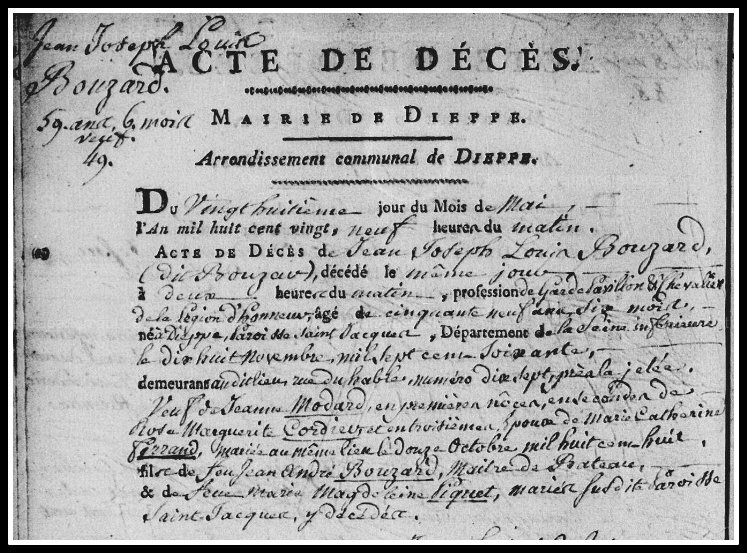 Jean Joseph Louis
Bouzard.
59. ans, 6. mois
veuf.
49.
ACTE DE DÉCÈS.
MAIRIE DE DIEPPE.
Arrondissement communal de DIEPPE.
DU Vingt huitième jour du Mois de Mai,
l'An mil huit cent vingt, neuf heures du matin.
ACTE DE DÉCÈS de Jean Joseph Louis Bouzard,
(dit Bouzav), décédé le même jour
à deux heures du matin, profession de Garde Pavillon & Chevalier
de la Légion d'honneur, âgé de cinquante neuf ans, six mois,
né à Dieppe, paroisse Saint Jacques, Département de la Seine inférieure
le dix huit Novembre, mil sept cent soixante,
demeurant au dit lieu, rue du hable, numéro dix sept, près la jetée.
Veuf de Jeanne Modard, en premières nôces, en secondes de
Rose Marguerite Cordier et en troisièmes, Epoux de Marie Catherine
Ferrand, mariés au même lieu le douze Octobre mil huit cent huit,
fils de feu Jean André Bouzard, Maitre de Bateau,
& de feue Marie Magdeleine Liquet, mariés susdite paroisse
Saint Jacques, y décédés.